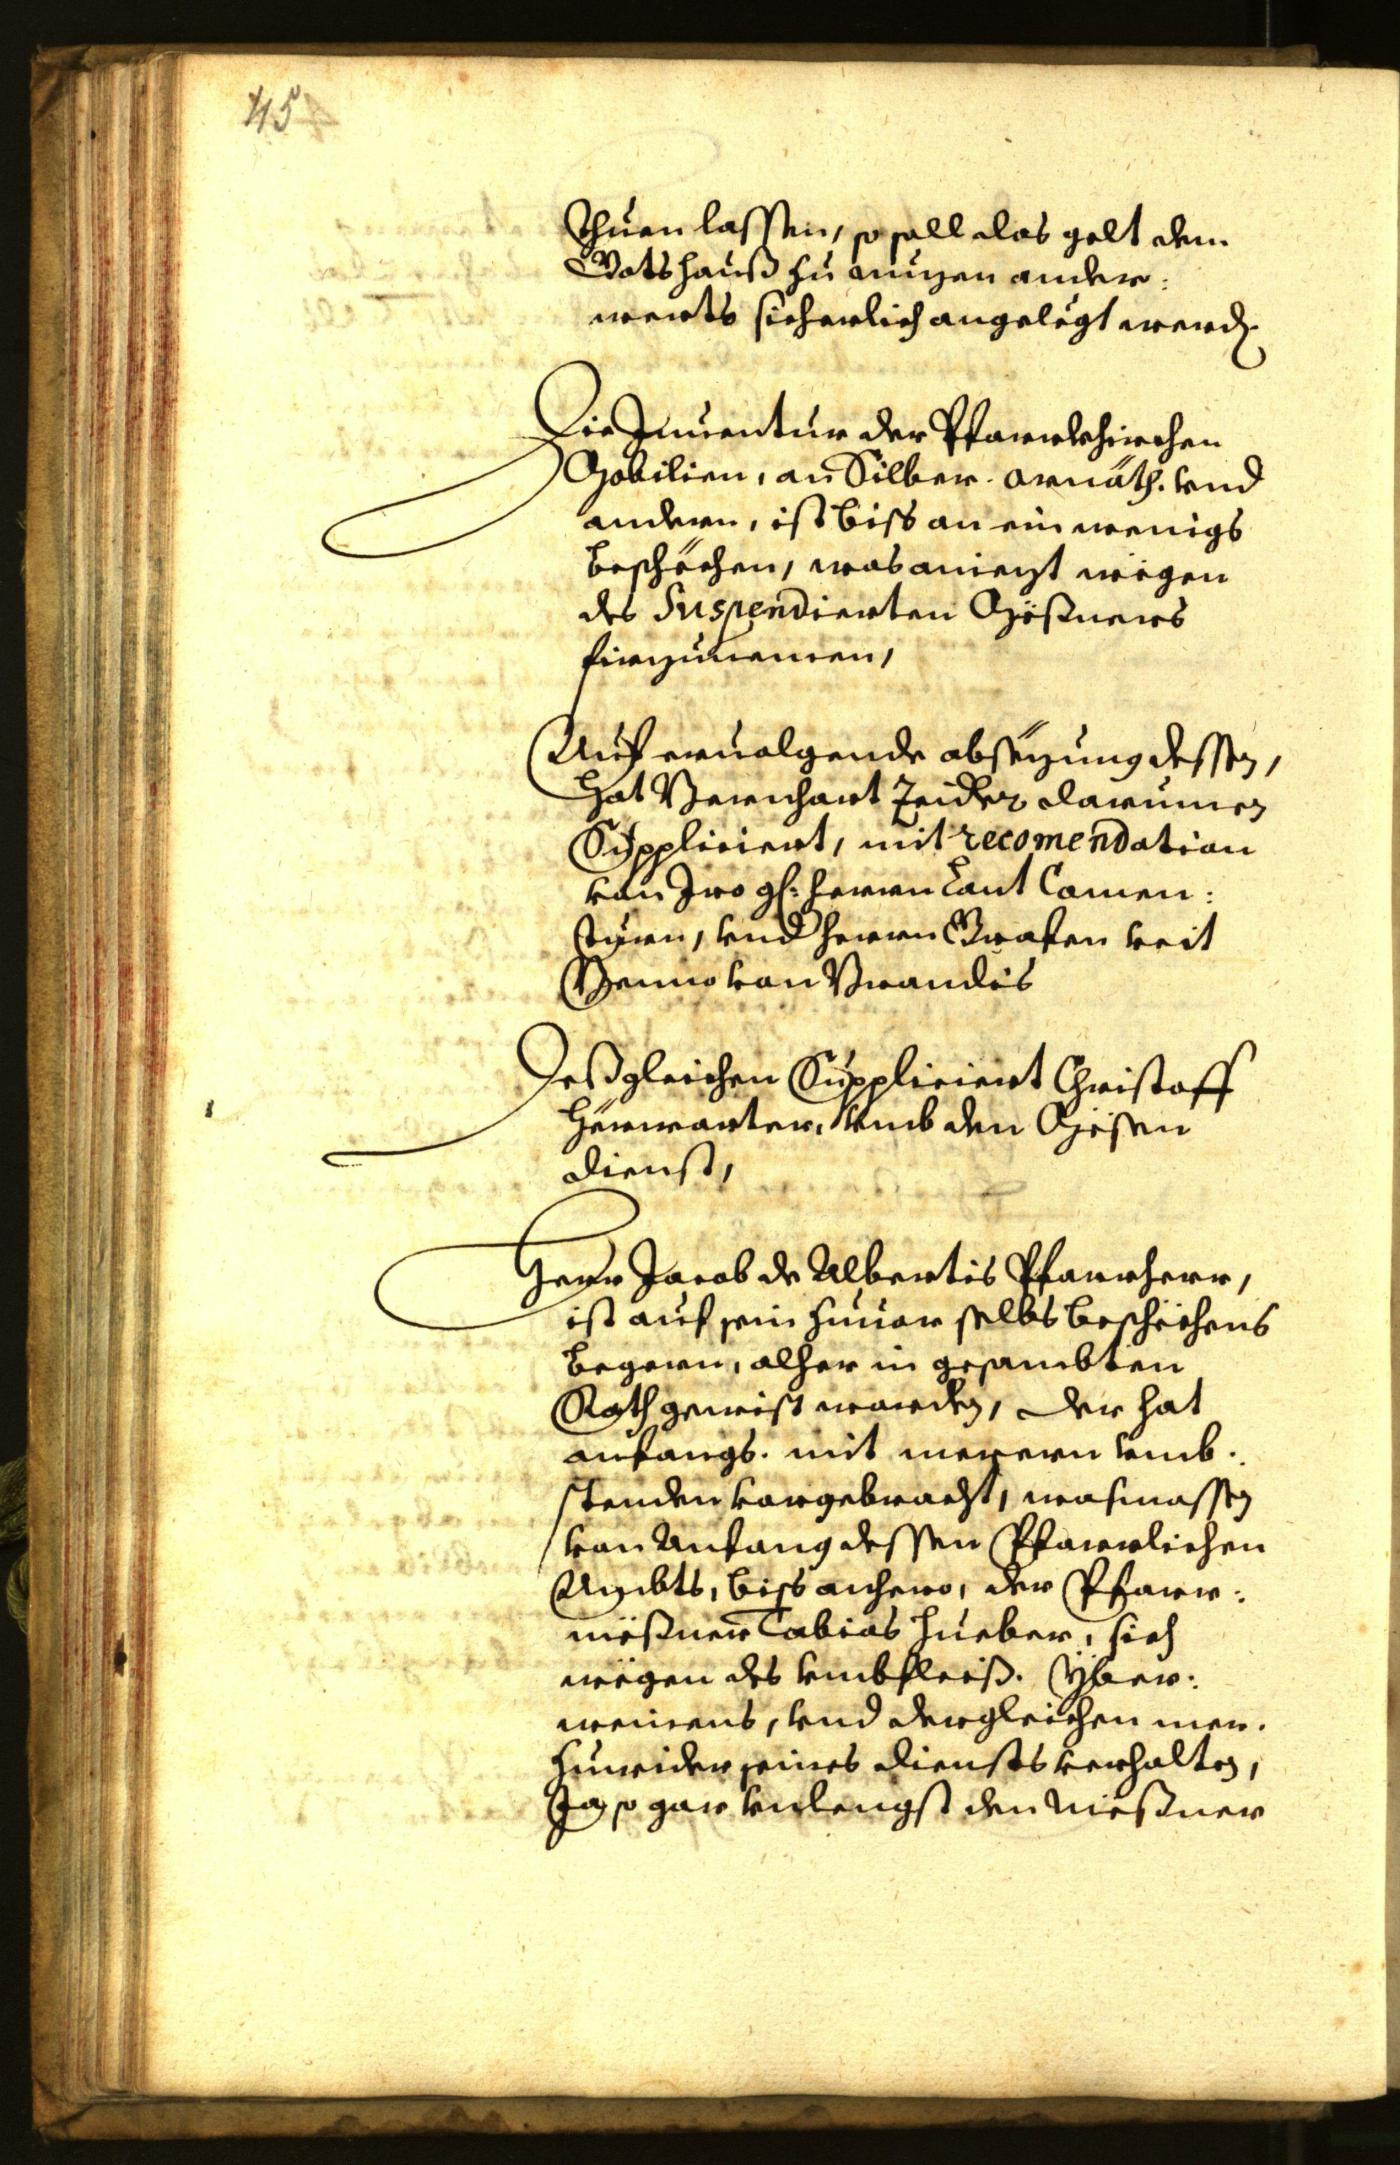 45
thuen lassen, so soll das gelt dem
Gotshauß zu nuzen ander:
werts sicherlich angelegt werd.
Die Inuentur der Pfarrkhirchen
Mobilien, an Silber. ornäth. vnd
andern, ist biss an ein wenigs
beschëchen, was aniezt wëgen
des Suspendierten Mëßners
firzunemen,
Auf ervolgende absëzung dessen,
hat Bernhart Zeidler darumen
Suppliciert, mit recomendation
von Iro gl: herrn Lant Comen:
turn, vnd herrn Grafen Veit
Benno von Brandis
Deßgleichen Suppliciert Christoff
Hërwarter, vmb den Mësen
dienst,
Herr Jacob de Albertis Pfarrherr,
ist auf sein zuuor selbs beschëchens
begern, alher in gesambten
Rath gewist worden, der hat
anfangs. mit merern vmb:
stenden vorgebracht, wasmassen
von Anfang dessen Pfarrlichen
Ambts, biss anhero, der Pfarr:
mëßner Tobias Hueber, sich
wëgen des vnbfleiß. yber:
weinens, vnd dergleichen mer.
zuwider seines diensts verhalten,
Ja so gar vnlengst den Mëßner